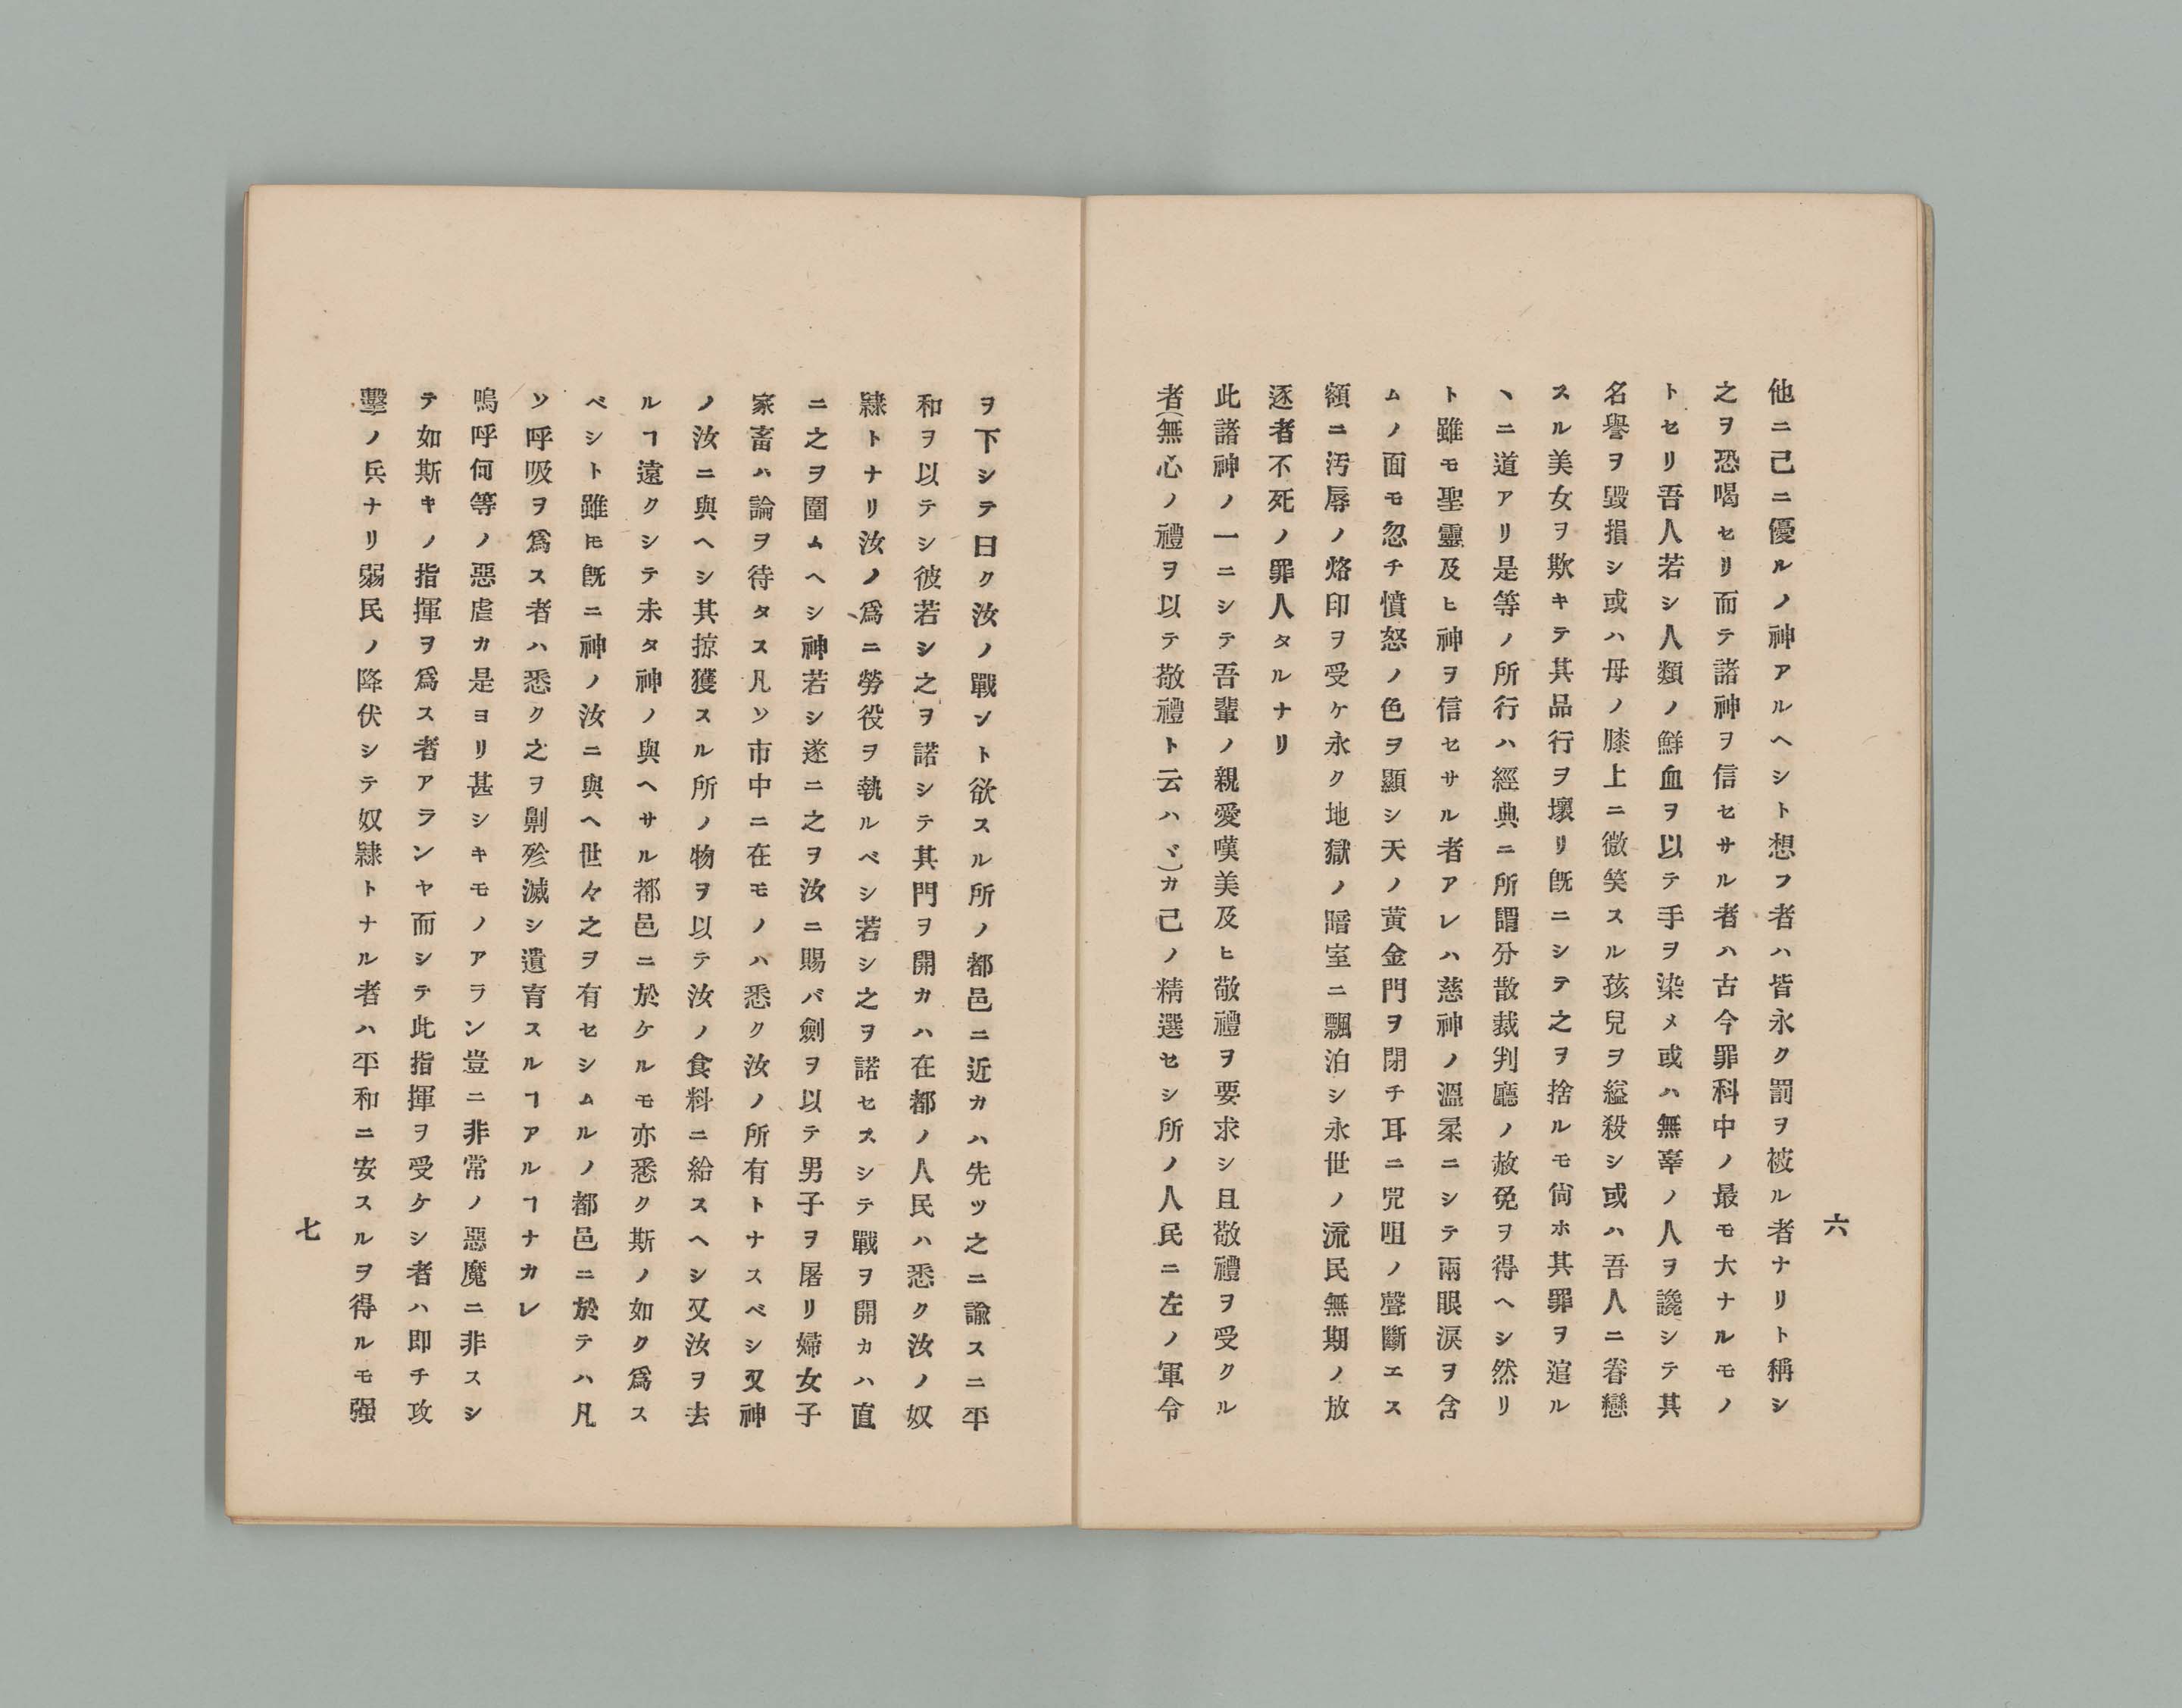 六
他ニ己ニ優ルノ神アルヘシト想フ者ハ皆永ク罰ヲ被ル者ナリト稱シ
之ヲ恐喝セリ而テ諸神ヲ信セサル者ハ古今罪科中ノ最モ大ナルモノ
トセリ吾人若シ人類ノ鮮血ヲ以テ手ヲ染メ或ハ無辜ノ人ヲ讒シテ其
名譽ヲ毀損シ或ハ母ノ膝上ニ微笑スル孩兒ヲ縊殺シ或ハ吾人ニ眷戀
スル美女ヲ欺キテ其品行ヲ壞リ旣ニシテ之ヲ捨ルモ尙ホ其罪ヲ逭ル
丶ニ道アリ是等ノ所行ハ經典ニ所謂分散裁判廳ノ赦免ヲ得ヘシ然リ
ト雖モ聖靈及ヒ神ヲ信セサル者アレハ慈神ノ溫柔ニシテ兩眼淚ヲ含
ムノ面モ忽チ憤怒ノ色ヲ顯シ天ノ黃金門ヲ閉チ耳ニ咒咀ノ聲斷エス
額ニ汚辱ノ烙印ヲ受ケ永ク地獄ノ暗室ニ飄泊シ永世ノ流民無期ノ放
逐者不死ノ罪人タルナリ
此諸神ノ一ニシテ吾輩ノ親愛嘆美及ヒ敬禮ヲ要求シ且敬禮ヲ受クル
者(無心ノ禮ヲ以テ敬禮ト云ハヾ)カ己ノ精選セシ所ノ人民ニ左ノ軍令
ヲ下シテ曰ク汝ノ戰ント欲スル所ノ都邑ニ近カハ先ツ之ニ諭スニ平
和ヲ以テシ彼若シ之ヲ諾シテ其門ヲ開カハ在都ノ人民ハ悉ク汝ノ奴
隸トナリ汝ノ爲ニ勞役ヲ執ルベシ若シ之ヲ諾セスシテ戰ヲ開カハ直
ニ之ヲ圍ムヘシ神若シ遂ニ之ヲ汝ニ賜バ劍ヲ以テ男子ヲ屠リ婦女子
家畜ハ論ヲ待タス凡ソ市中ニ在モノハ悉ク汝ノ所有トナスベシ又神
ノ汝ニ與ヘシ其掠獲スル所ノ物ヲ以テ汝ノ食料ニ給スヘシ又汝ヲ去
ルヿ遠クシテ未タ神ノ與ヘサル都邑ニ於ケルモ亦悉ク斯ノ如ク爲ス
ベシト雖𪜈旣ニ神ノ汝ニ與ヘ世々之ヲ有セシムルノ都邑ニ於テハ凡
ソ呼吸ヲ爲ス者ハ悉ク之ヲ剿殄滅シ遺育スルヿアルヿナカレ
嗚呼何等ノ惡虐カ是ヨリ甚シキモノアラン豈ニ非常ノ惡魔ニ非スシ
テ如斯キノ指揮ヲ爲ス者アランヤ而シテ此指揮ヲ受ケシ者ハ卽チ攻
擊ノ兵ナリ弱民ノ降伏シテ奴隸トナル者ハ平和ニ安スルヲ得ルモ强
七